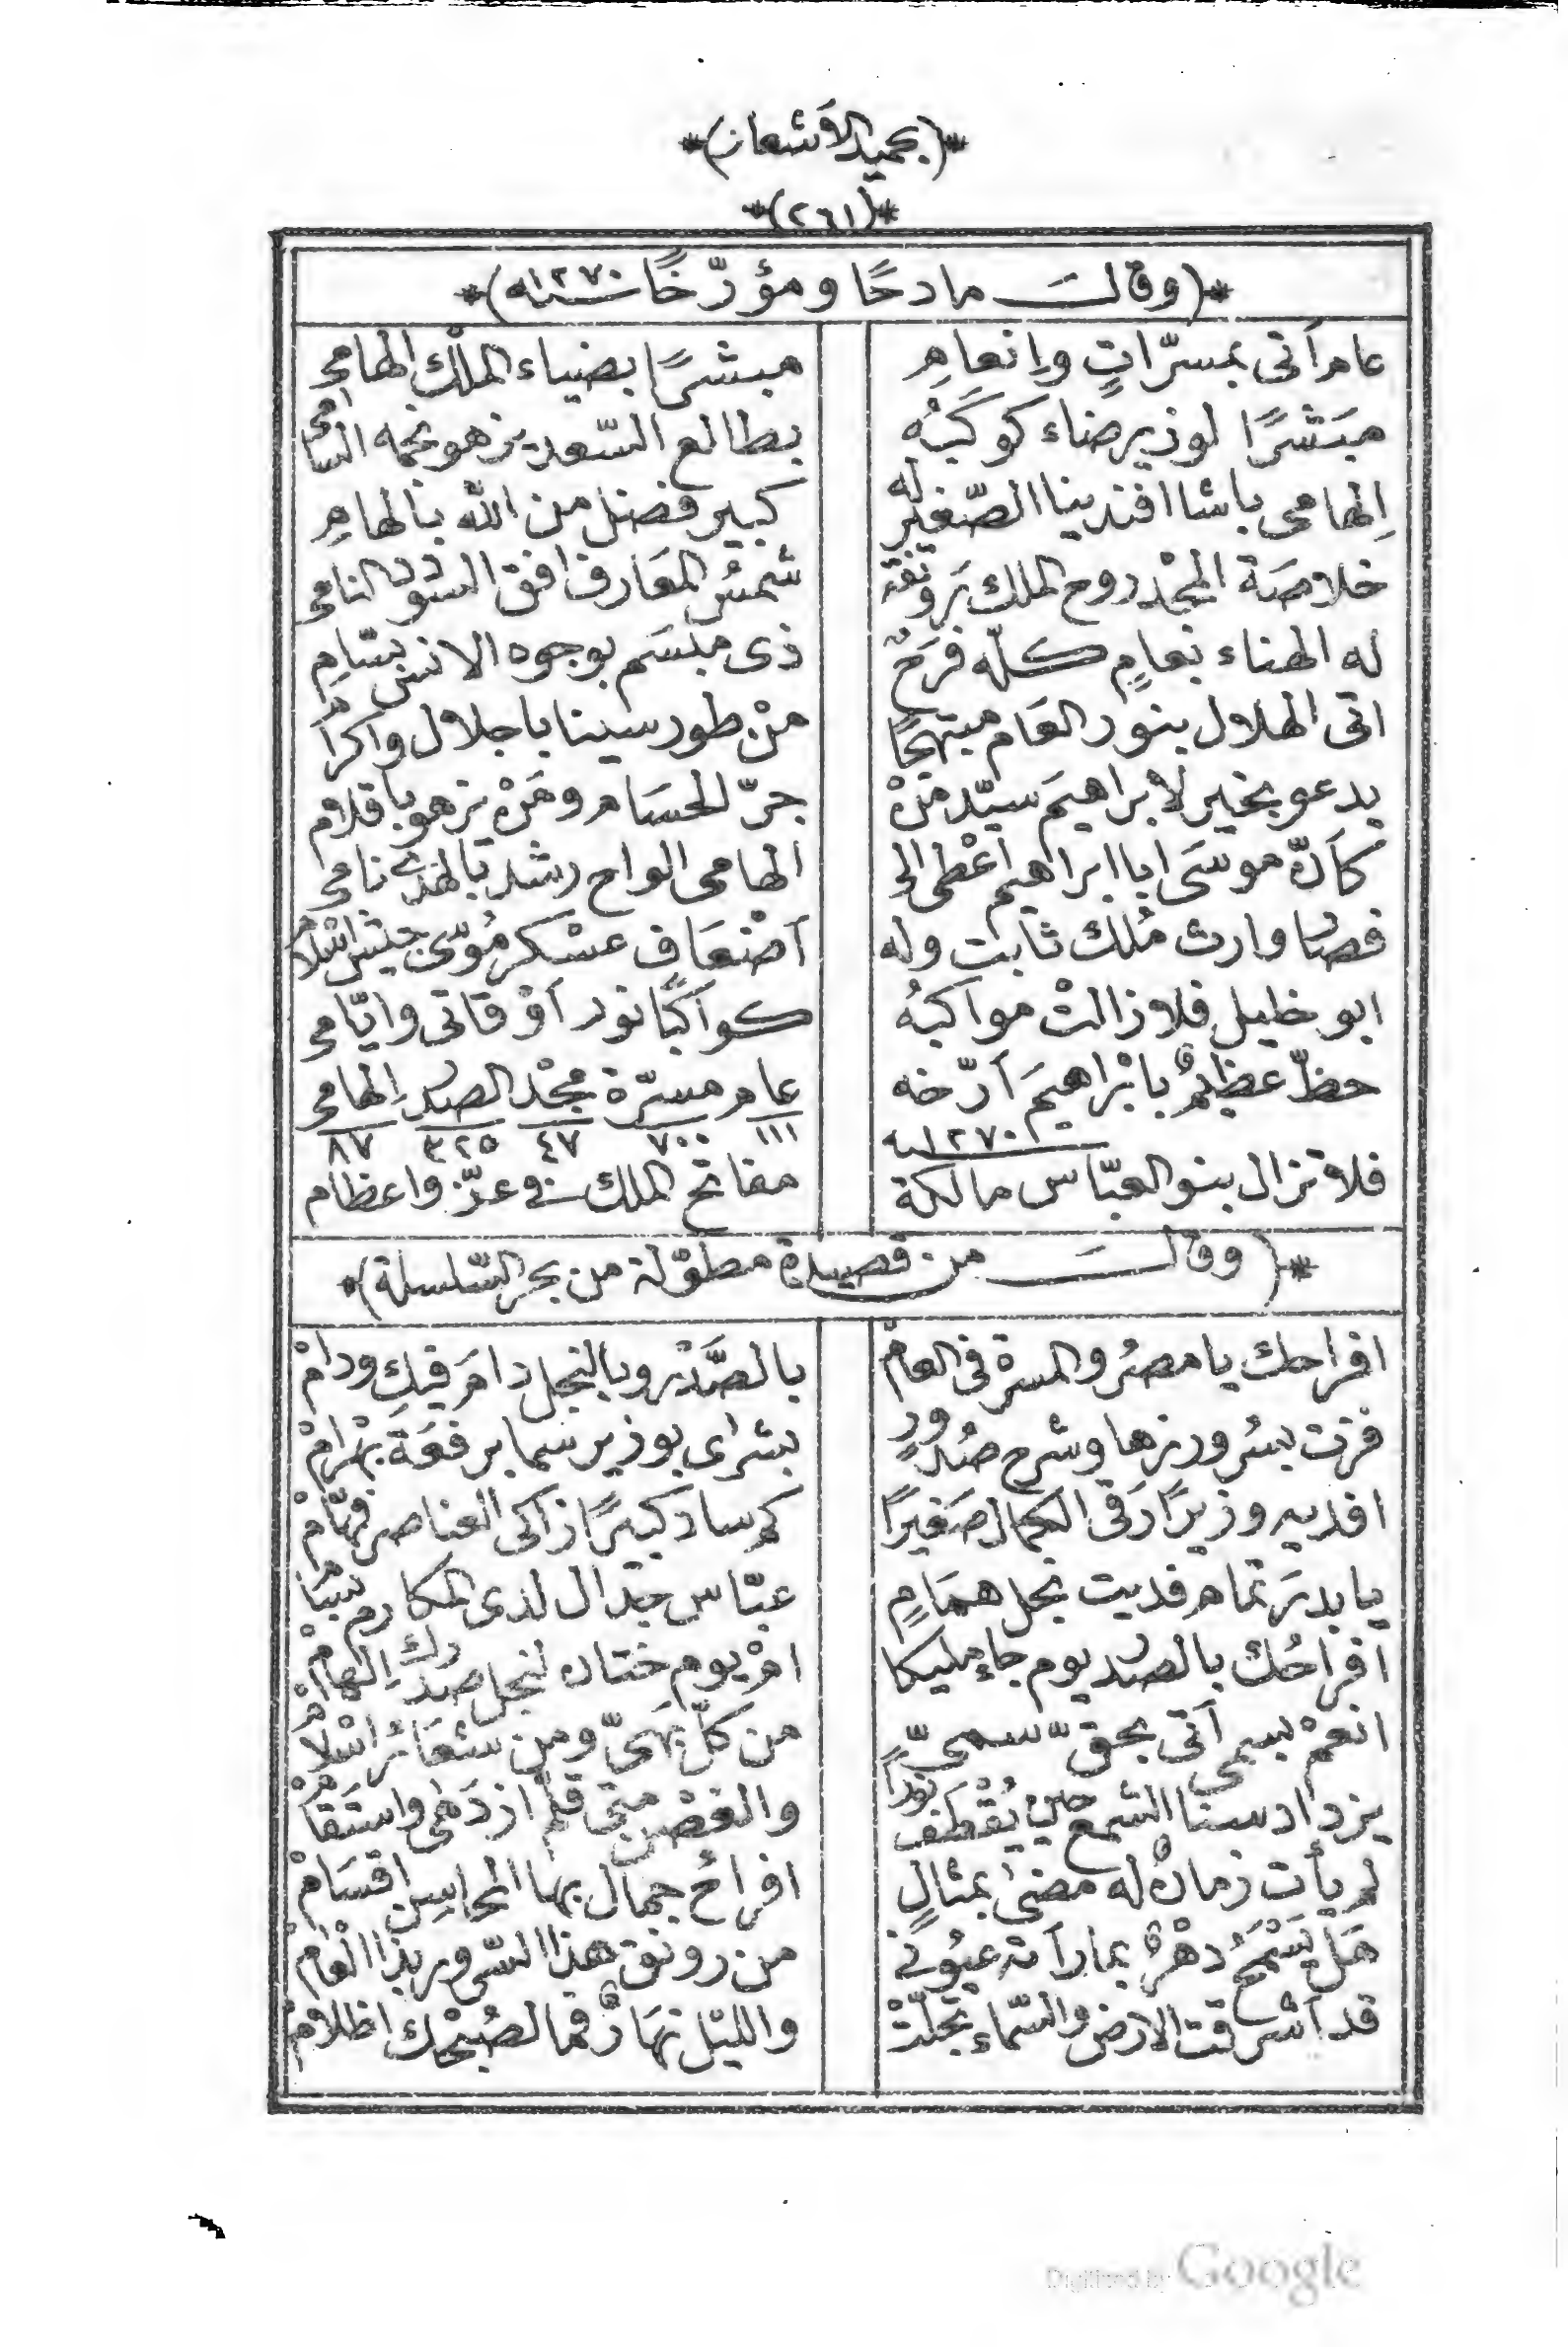 *(بحميد الأشعار)*
*(٢٦١)*
*(وقالــــت مادحًا ومؤرّخًا سنة ١٢٧٠)*
عام أتى بمسرّاتٍ وإنعامِ مبشرًا بضياء الملْك الهامى
مبَشرًا لوزير ضاء كوكبُه بطالع السّعد يزهو نجمه السامى
إلهامى باشا افندينا الصّغير له كبير فضل من الله بالهامِ
خلاصَة المجْد روح الملك رَونقه شمسُ المعَارف افق السودد النامى
له الهناء بعامٍ كلّه فرَحٌ ذى مبسَم بوجوه الانس بسّامِ
اتى الهلال بنور العَام مبتهجًا منْ طور سينا باجلال واكرام
يدعو بخير لابراهيمَ سيّد منْ جرّ الحسَام ومَنْ يزهو باقلام
كأنّه موسَى ابا ابراهيم اعْطى الى الهامى الواح رشد بالهدى نامى
فصار وارث مُلك ثابت وله أضْعَاف عسْكر مُوسى جيش اسْلام
ابو خليل فلا زالتْ مواكبُه كواكبًا نور أوْقاتى وايّامى
حظّ عظيمٌ بابْراهيمَ أرّخه عام مسرّة مجْد الصدر إلهامى
سنة ١٢٧٠ ١١١ ٧٠٠ ٤٧ ٣٢٥ ٨٧
فلا تزال بنو العبّاس مالكة مفاتح الملك فى عزّ واعظام
*(وقالــــت من قصيدة مطوّلة من بحر السّلسلة)*
افراحك يا مصرُ والمسرة فى العامْ بالصَّدْر وبالنجل دامَ فيكِ ودامْ
فزت بسُرور زها وشرح صُدورٍ بشراى بوزير سما برفعَة بهْرامْ
افديه وزيرًا رَقى الكمال صَغيرًا كم ساد كبيرًا زاكى العناصر فهّامْ
يا بدرَ تمام فديت نجل همَامٍ عبّاس جدال لدى المكارم بسّامْ
افراحُك بالصدر يوم جاء مليكا امْ يوم ختان لنجل صدرك إلهامْ
انعمْ بسمى أتى بحقّ سمىّ من كلّ بهىّ ومن شعَائر اسْلامْ
يزداد سنا الشمع حين يُقْطَف نورًا والغصْن متى قلم ازدَهى واستقامْ
لم يأت زمانٌ له مضىٰ بمثالٍ افراحُ جمال بها المحاسِن اقسَامْ
هَل يَسْمَحُ دهْرٌ بما رأته عيُونى من رونق هذا السّرور بذا الْعامْ
قد أشرقت الارض والسّماء تجلّتْ والليْل نهَارٌ فما لصُبْحك اظلامْ
Digitized by Google